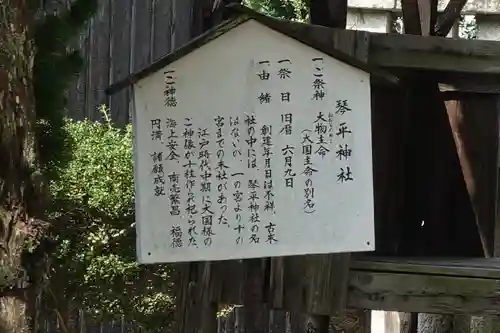 琴平神社
一ご祭神 大物主命
おおものぬしのみこと
(大国主命の別名)
一祭日 旧暦 六月九日
一由緒
創建年月日は不祥、古末
社の中には、琴平神社の名
はないが、一の宮より十の
宮までの末社があった。
江戸時代中期に大国様の
ご神像が十柱作られ祀られた。
一ご神徳
海上安全、商売繁昌 福徳
円満、諸願成就